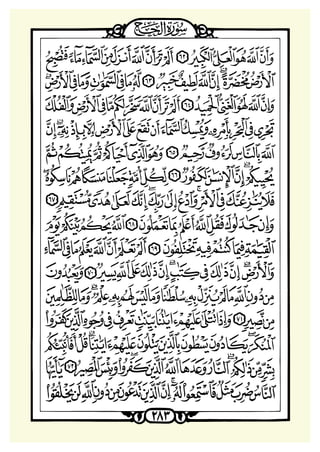 سُورَةُ الْحَجِّ
وَأَنَّ اللَّهَ هُوَ الْعَلِيُّ الْكَبِيرُ ٦٢ أَلَمْ تَرَ أَنَّ اللَّهَ أَنزَلَ مِنَ السَّمَاءِ مَاءً فَتُصْبِحُ
الْأَرْضُ مُخْضَرَّةً إِنَّ اللَّهَ لَطِيفٌ خَبِيرٌ ٦٣ لَّهُ مَا فِي السَّمَٰوَٰتِ وَمَا فِي الْأَرْضِ
وَإِنَّ اللَّهَ لَهُوَ الْغَنِيُّ الْحَمِيدُ ٦٤ أَلَمْ تَرَ أَنَّ اللَّهَ سَخَّرَ لَكُم مَّا فِي الْأَرْضِ وَالْفُلْكَ
تَجْرِي فِي الْبَحْرِ بِأَمْرِهِ وَيُمْسِكُ السَّمَاءَ أَن تَقَعَ عَلَى الْأَرْضِ إِلَّا بِإِذْنِهِ إِنَّ
اللَّهَ بِالنَّاسِ لَرَءُوفٌ رَّحِيمٌ ٦٥ وَهُوَ الَّذِي أَحْيَاكُمْ ثُمَّ يُمِيتُكُمْ ثُمَّ
يُحْيِيكُمْ إِنَّ الْإِنسَٰنَ لَكَفُورٌ ٦٦ لِّكُلِّ أُمَّةٍ جَعَلْنَا مَنسَكًا هُمْ نَاسِكُوهُ
فَلَا يُنَٰزِعُنَّكَ فِي الْأَمْرِ وَادْعُ إِلَىٰ رَبِّكَ إِنَّكَ لَعَلَىٰ هُدًى مُّسْتَقِيمٍ ٦٧
وَإِن جَٰدَلُوكَ فَقُلِ اللَّهُ أَعْلَمُ بِمَا تَعْمَلُونَ ٦٨ اللَّهُ يَحْكُمُ بَيْنَكُمْ يَوْمَ
الْقِيَٰمَةِ فِيمَا كُنتُمْ فِيهِ تَخْتَلِفُونَ ٦٩ أَلَمْ تَعْلَمْ أَنَّ اللَّهَ يَعْلَمُ مَا فِي السَّمَاءِ
وَالْأَرْضِ إِنَّ ذَٰلِكَ فِي كِتَٰبٍ إِنَّ ذَٰلِكَ عَلَى اللَّهِ يَسِيرٌ ٧٠ وَيَعْبُدُونَ
مِن دُونِ اللَّهِ مَا لَمْ يُنَزِّلْ بِهِ سُلْطَٰنًا وَمَا لَيْسَ لَهُم بِهِ عِلْمٌ وَمَا لِلظَّٰلِمِينَ
مِن نَّصِيرٍ ٧١ وَإِذَا تُتْلَىٰ عَلَيْهِمْ ءَايَٰتُنَا بَيِّنَٰتٍ تَعْرِفُ فِي وُجُوهِ الَّذِينَ كَفَرُوا
الْمُنكَرَ يَكَادُونَ يَسْطُونَ بِالَّذِينَ يَتْلُونَ عَلَيْهِمْ ءَايَٰتِنَا قُلْ أَفَأُنَبِّئُكُم
بِشَرٍّ مِّن ذَٰلِكُمُ النَّارُ وَعَدَهَا اللَّهُ الَّذِينَ كَفَرُوا وَبِئْسَ الْمَصِيرُ ٧٢ يَٰأَيُّهَا
النَّاسُ ضُرِبَ مَثَلٌ فَاسْتَمِعُوا لَهُ إِنَّ الَّذِينَ تَدْعُونَ مِن دُونِ اللَّهِ لَن يَخْلُقُوا
٢٨٣